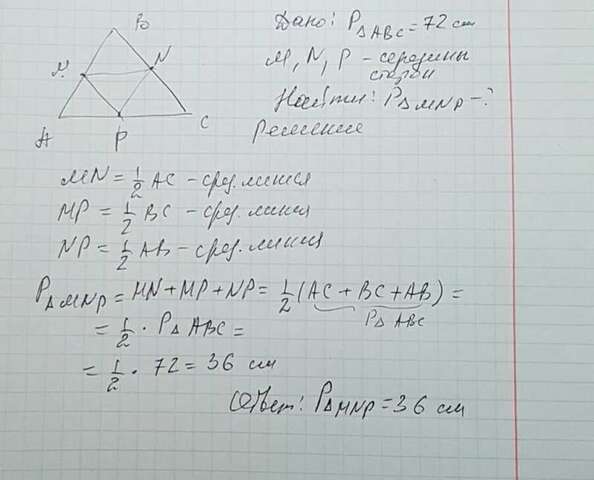 B
M
N
A
P
C
Дано: P△ABC = 72 см
M, N, P – середины
сторон
Найти: P△MNP – ?
Решение
MN = 1/2 AC – сред. линия
MP = 1/2 BC – сред. линия
NP = 1/2 AB – сред. линия
P△MNP = MN + MP + NP = 1/2 (AC + BC + AB) =
P△ABC
= 1/2 · P△ABC =
= 1/2 · 72 = 36 см
Ответ: P△MNP = 36 см